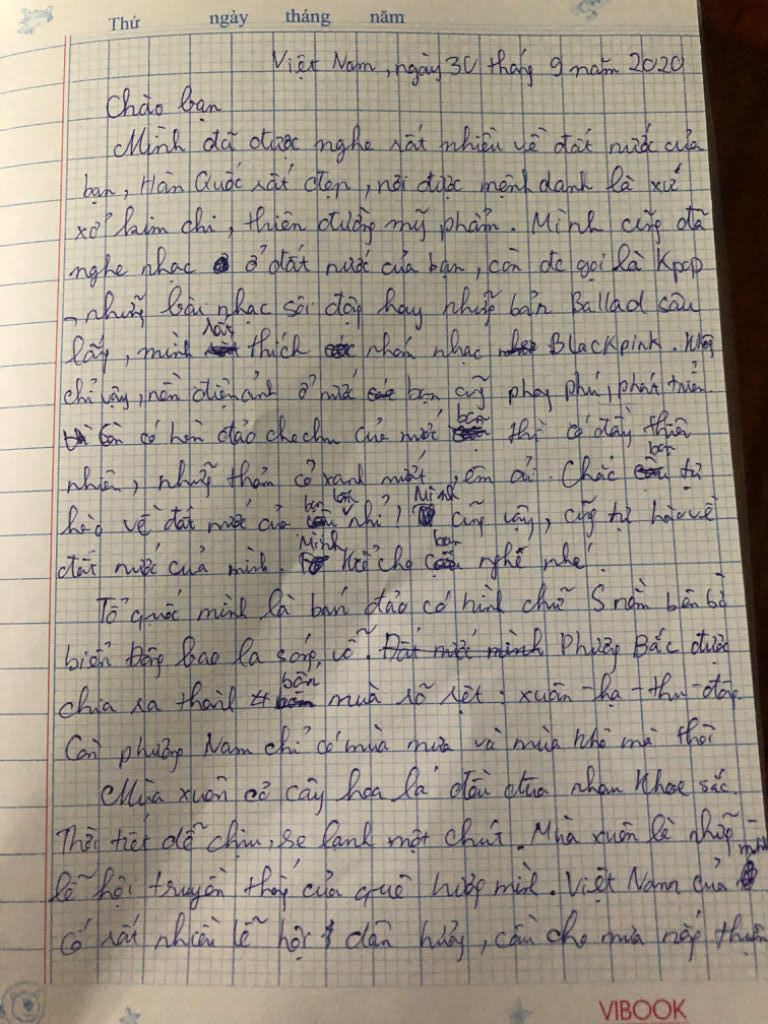 Thứ ngày tháng năm
Việt Nam, ngày 30 tháng 9 năm 2020
Chào bạn
Mình đã được nghe rất nhiều về đất nước của
bạn, Hàn Quốc rất đẹp, nơi được mệnh danh là xứ
xở kim chi, thiên đường mỹ phẩm. Mình cũng đã
nghe nhạc ở đất nước của bạn, còn đc gọi là Kpop
, những bài nhạc sôi động hay những bản Ballad sâu
lắng, mình rất thích nhóm nhạc Blackpink. Không
chỉ vậy, nền điện ảnh ở nước bạn cũng phong phú, phát triển.
còn có hòn đảo của nước bạn thì có đầy thiên
nhiên, những thảm cỏ xanh mướt, êm ái. Chắc bạn tự
hào về đất nước của bạn lắm nhỉ! Mình cũng vậy, cũng tự hào về
đất nước của mình. Mình kể cho bạn nghe nhé!
Tổ quốc mình là bán đảo có hình chữ S nằm bên bờ
biển Đông bao la sóng vỗ. Đất nước mình Phương Bắc được
chia ra thành bốn mùa rõ rệt: xuân - hạ - thu - đông.
Còn phương Nam chỉ có mùa mưa và mùa khô mà thôi
Mùa xuân cỏ cây hoa lá đều đua nhau khoe sắc.
Thời tiết dễ chịu, se lạnh một chút. Mùa xuân là những
lễ hội truyền thống của quê hương mình. Việt Nam của mình
có rất nhiều lễ hội dân hương, cầu cho mưa nắng thuận
VIBOOK